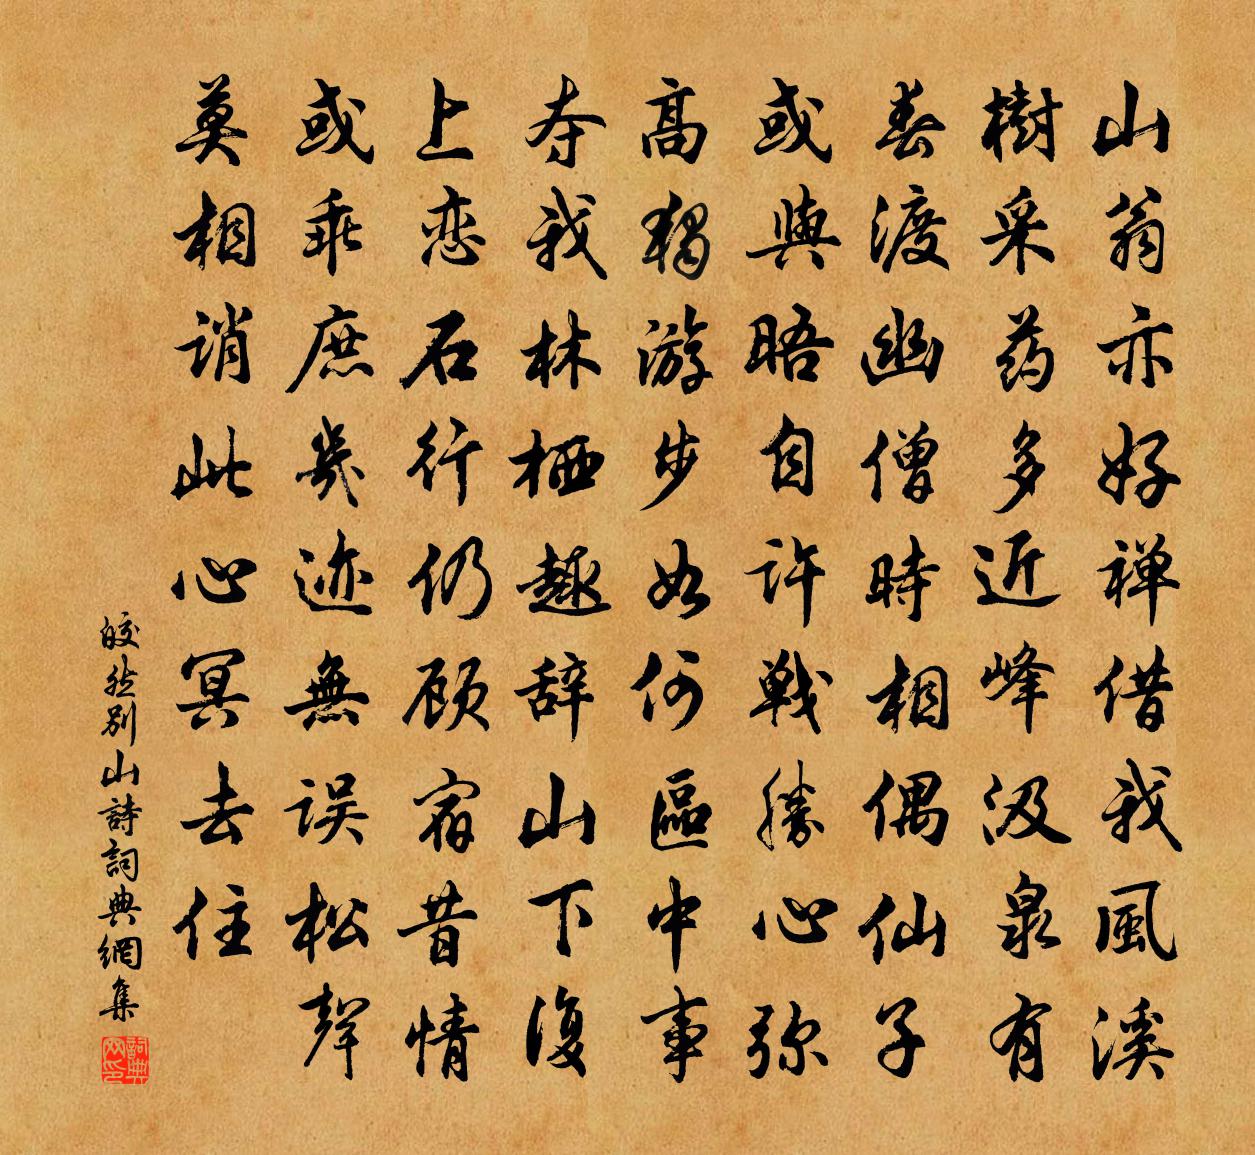 山翁亦好禅借我風溪
樹采药多近峰汲泉有
春渡幽僧時相偶仙子
或與晤自许戦勝心弥
高獨游步如何區中事
夺我林栖趣辞山下復
上恋石行仍顾宿昔情
或乖庶幾迹無误松聲
莫相诮此心冥去住
皎然別山詩詞典網集
詞典网印